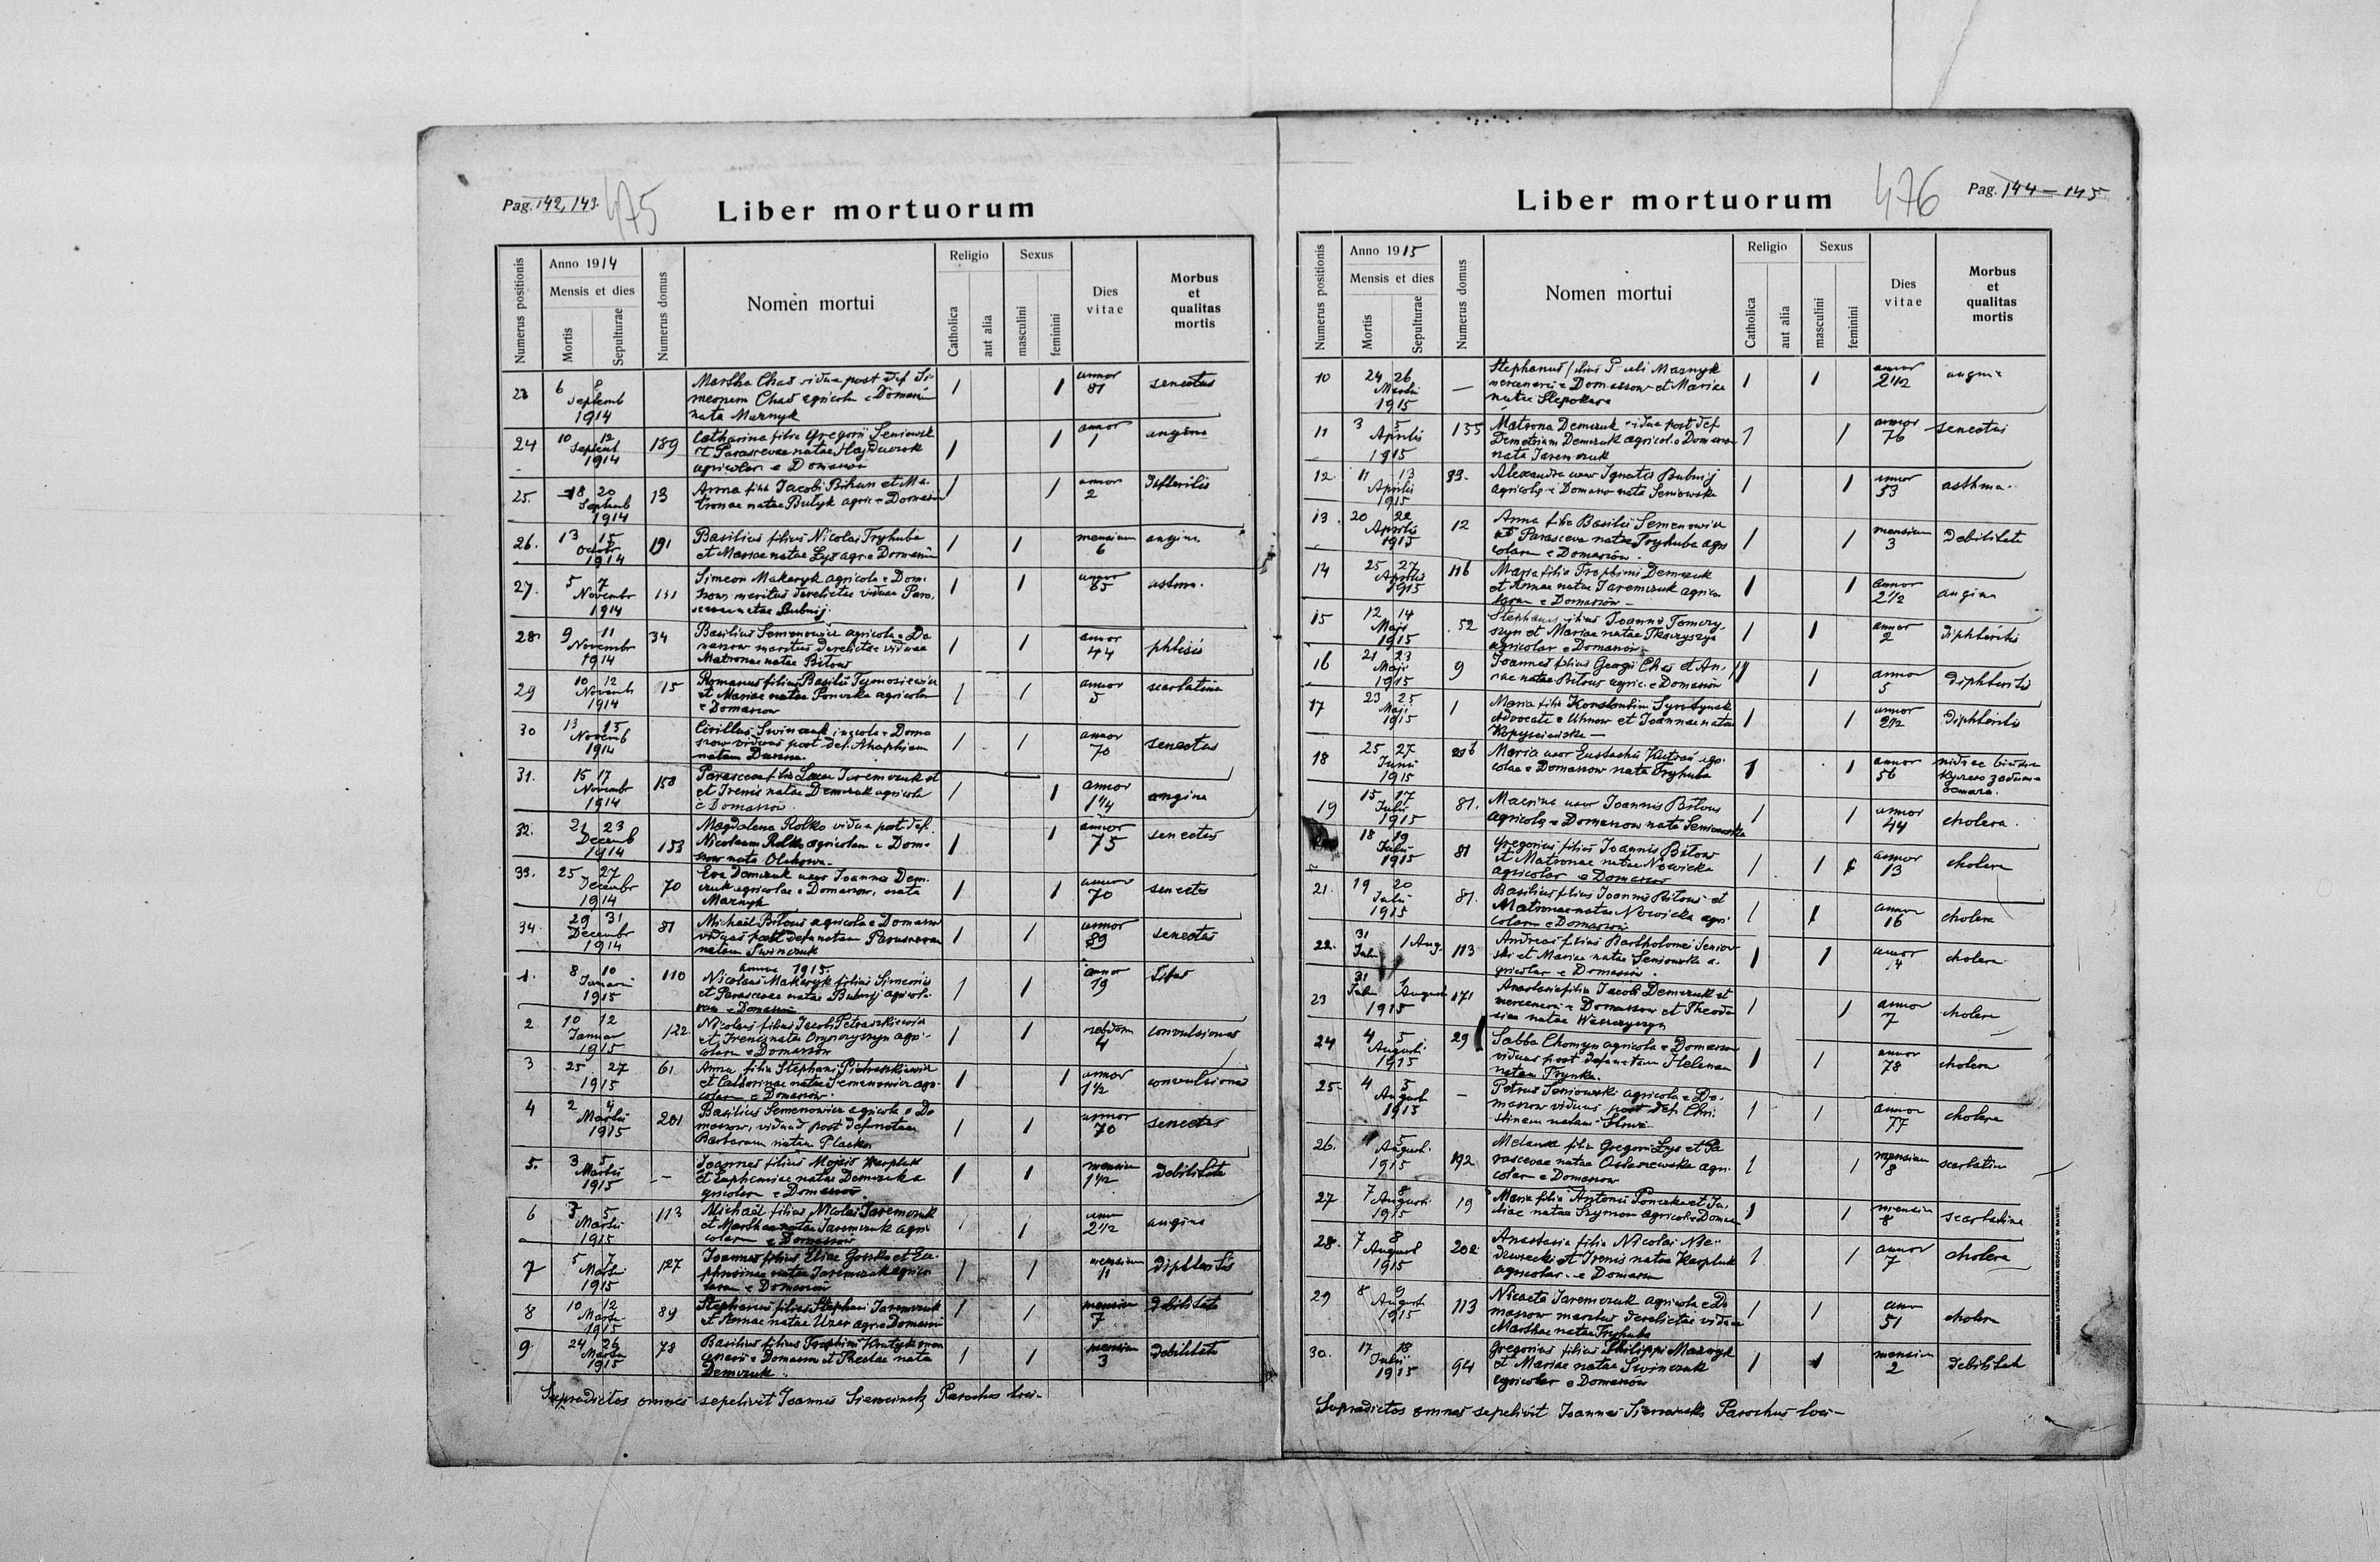 Pag. 142, 143.
475
Liber mortuorum
Numerus positionis
Anno 1914
Mensis et dies
Mortis
Sepulturae
Numerus domus
Nomen mortui
Religio
Catholica
aut alia
Sexus
masculini
feminini
Dies vitae
Morbus et qualitas mortis
23 6 8 Septemb 1914
Martha Chas vidua post def. Si-
meonem Chas agricola e Domaszów
nata Maznyk
annor 81 senectus
24 10 12 Septemb 1914 189
Catharina filia Gregorii Seniowsk
et Parascevae natae
agricolar e Domaszów
annor 1 angina
25. 18 20 Septemb 1914 13
Anna filia Jacobi Bihun et Ma-
tronae natae Bułyk agric e Domaszów
annor 2
26. 13 15 Octobr 1914 191
Basilius filius Nicolai Tryhuba
et Mariae natae Lys agr e Domaszów
mensium 6 angina
27. 5 7 Novembr 1914
Simeon Makaryk agricola e Dom-
maritus derelictae viduae Para-
natae Bubnij
annor 85 astma.
28. 9 11 Novembr 1914 34
Basilius Semenowicz agricola e Do
maszow maritus derelictae viduae
Matronae natae Biłous
annor 44 phtisis
29 10 12 Novemb 1914 115
Romanus filius Basilii Tymosiewicz
et Mariae natae Ponczka agricolar
e Domaszow
annor 5 scarlatina
30 13 15 Novemb 1914
Cirillus Swinczuk e Doma
szow viduus post def.
natam
annor 70 senectus
31. 15 17 Novembr 1914 158
Parasceva filia Lucae Jaremczuk et
et Irenis natae Demczuk agricola
e Domaszów
annor 1 1/4 angina
32. 21 23 Decemb 1914 153
Magdalena Rolko vidua post def.
Nicolaum Rolko agricolam e Doma-
szow nata
annor 75 senectus
33. 25 27 Decembr 1914 70
Eva Demczuk uxor Joannis Dem-
czuk agricolae e Domaszow, nata
Maznyk
annor 70 senectus
34. 29 31 Decembr 1914 81
Michaël Biłous agricola e Domaszow
viduus post defunctam Parascevam
natam Swinczuk
annor 89 senectus
anno 1915.
1. 8 10 Januarii 1915 110
Nicolaus Makaryk filius Simeonis
et Parascevae natae Bubnij agricola-
rum e Domaszów
annor 19 Tifus
2 10 12 Januar 1915 122
Nicolaus filius Jacobi Petraszkiewicz
et Irenis natae agri-
colarum e Domaszów
4 convulsiones
3 25 27 1915 61
Anna filia Stephani Pietraszkiewicz
et Catharinae natae Semenowicz agri-
colarum e Domaszów.
annor 1 1/2 convulsiones
4 2 4 Martii 1915 201
Basilius Semenowicz agricola e Do
maszow, viduus post defunctam
Barbaram natam Placko
annor 70 senectus
5. 3 5 Martii 1915 —
Joannes filius Mojsis Karpluk
et Euphemiae natae Demczuk a
gricolarum e Domaszów.
mensium 1 1/2 debilitate
6 3 5 Martii 1915 113
Michaël filius Nicolai Jaremczuk
et Marthae natae Jaremczuk agri-
colarum e Domaszów
2 1/2 angina
7 5 7 Martii 1915 127
Joannes filius Eliae Goszko et Eu-
phrosinae natae Jaremczuk agrico
larum e Domaszów
mensium 11 diphteritis
8 10 12 Martii 1915 89
Stephanus filius Stephani Jaremczuk
et Annae natae agric e Domaszów
mensium 7 debilitate
9 24 26 Martii 1915 73
Basilius filius Trophimi Krutyk mer
cenarii e Domaszow et Theclae nata
Demczuk.
mensium 3 debilitate
Supradictos omnes sepelivit Joannes Parochus loci-
476
Pag. 144 — 145
Liber mortuorum
Numerus positionis
Anno 1915
Mensis et dies
Mortis
Sepulturae
Numerus domus
Nomen mortui
Religio
Catholica
aut alia
Sexus
masculini
feminini
Dies vitae
Morbus et qualitas mortis
10 24 26 Martii 1915 —
Stephanus filius Pauli Maznyk
mercenarii e Domaszow et Mariae
natae Slepokura
annor 2 1/2 angina
11 3 5 Aprilis 1915 155
Matrona Demczuk vidua post def
Demetrium Demczuk agricol e Domaszow
nata Jaremczuk
annor 76 senectus
12. 11 13 Aprilis 1915 83.
Alexandra uxor Ignatii Bubnij
agricolae e Domaszow nata Seniowska
annor 53 asthma.
13. 20 22 Aprilis 1915 12
Anna filia Basilii Semenowicz
et Parasceva natae Tryhuba agri
colarum e Domaszów.
mensium 3 debilitate
14 25 27 Aprilis 1915 116
Maria filia Trophimi Demczuk
et Annae natae Jaremczuk agrico
larum e Domaszów —
annor 2 1/2 angina
15 12 14 Maji 1915 52
Stephanus filius Joannis
et Mariae natae
agricolar e Domaszów.
annor 2 diphteritis
16 21 23 Maji 1915 9
Joannes filius Georgii Chas et An-
nae natae Biłous agric. e Domaszów
annor 5 diphteritis
17 23 25 Maji 1915 1
Maria filia Konstantini
advocati e Uhnow et Joannae natae
annor 2 1/2 diphteritis
18 25 27 Junii 1915 206
Maria uxor Eustachii agri-
colae e Domaszow nata Tryhuba
annor 56
19 15 17 Julii 1915 81.
Macrina uxor Joannis Biłous
agricolae e Domaszow nata Seniowska
annor 44 cholera.
18 19 Julii 1915 81
Gregorius filius Joannis Biłous
et Matronae natae Nowicka
agricolar e Domaszow
annor 13 cholera
21. 19 20 Julii 1915 81.
Basilius filius Joannis Biłous et
Matronae natae Nowicka agri-
colarum e Domaszów
annor 16 cholera
22. 31 Julii 1 Aug. 113
Andreas filius Bartholomei Seniow
ski et Mariae natae Seniowska a-
gricolar e Domaszów.
annor cholera
23 31 Julii 1 August 1915 171
Anastasia filia Jacobi Demczuk et
mercenarii e Domaszow et Theodo
siae natae
annor 7 cholera
24 4 5 Augusti 1915 29
Sabba Chomyn agricola e Domaszow
viduus post defunctam Helenam
natam Hrynko.
annor 78 cholera
25. 4 5 August 1915 —
Petrus Seniowski agricola e Do-
maszow viduus post def. Chri-
stinam natam
annor 77 cholera
26. 5 Augusti 1915 192
Melania filia Gregorii Lys et Pa
rascevae natae Ostaszewska agri-
colar e Domaszow
mensium 8 scarlatina
27 7 8 Augusti 1915 19
Maria filia Antonii Ponczka et Ju-
liae natae Szymon agricol e Domaszow
mensium 8 scarlatina
28. 7 8 August 1915 202
Anastasia filia Nicolai Nie-
et Irenis natae Karpluk
agricolar. e Domaszow
annor 7 cholera
29 8 9 August 1915 113
Niceta Jaremczuk agricola e Do
maszow maritus derelictae viduae
Marthae natae Tryhuba
annor 51 cholera
30. 17 18 Julii 1915 94
Gregorius filius Philippi Maznyk
et Mariae natae Swinczuk
agricolar e Domaszów
mensium 2 debilitate
Supradictos omnes sepelivit Joannes Parochus loci—